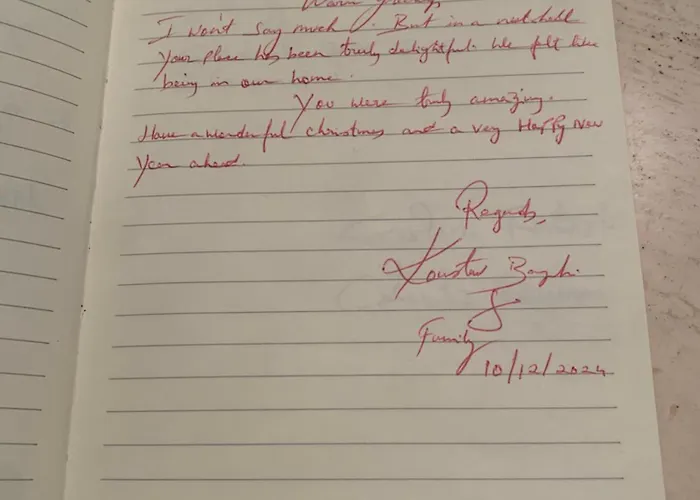 I won't say much. But in a nutshell
Your place has been truly delightful. We felt like
being in our home.
You were truly amazing.
Have a wonderful christmas and a very Happy New
Year ahead.
Regards,
&
Family
10/12/2024